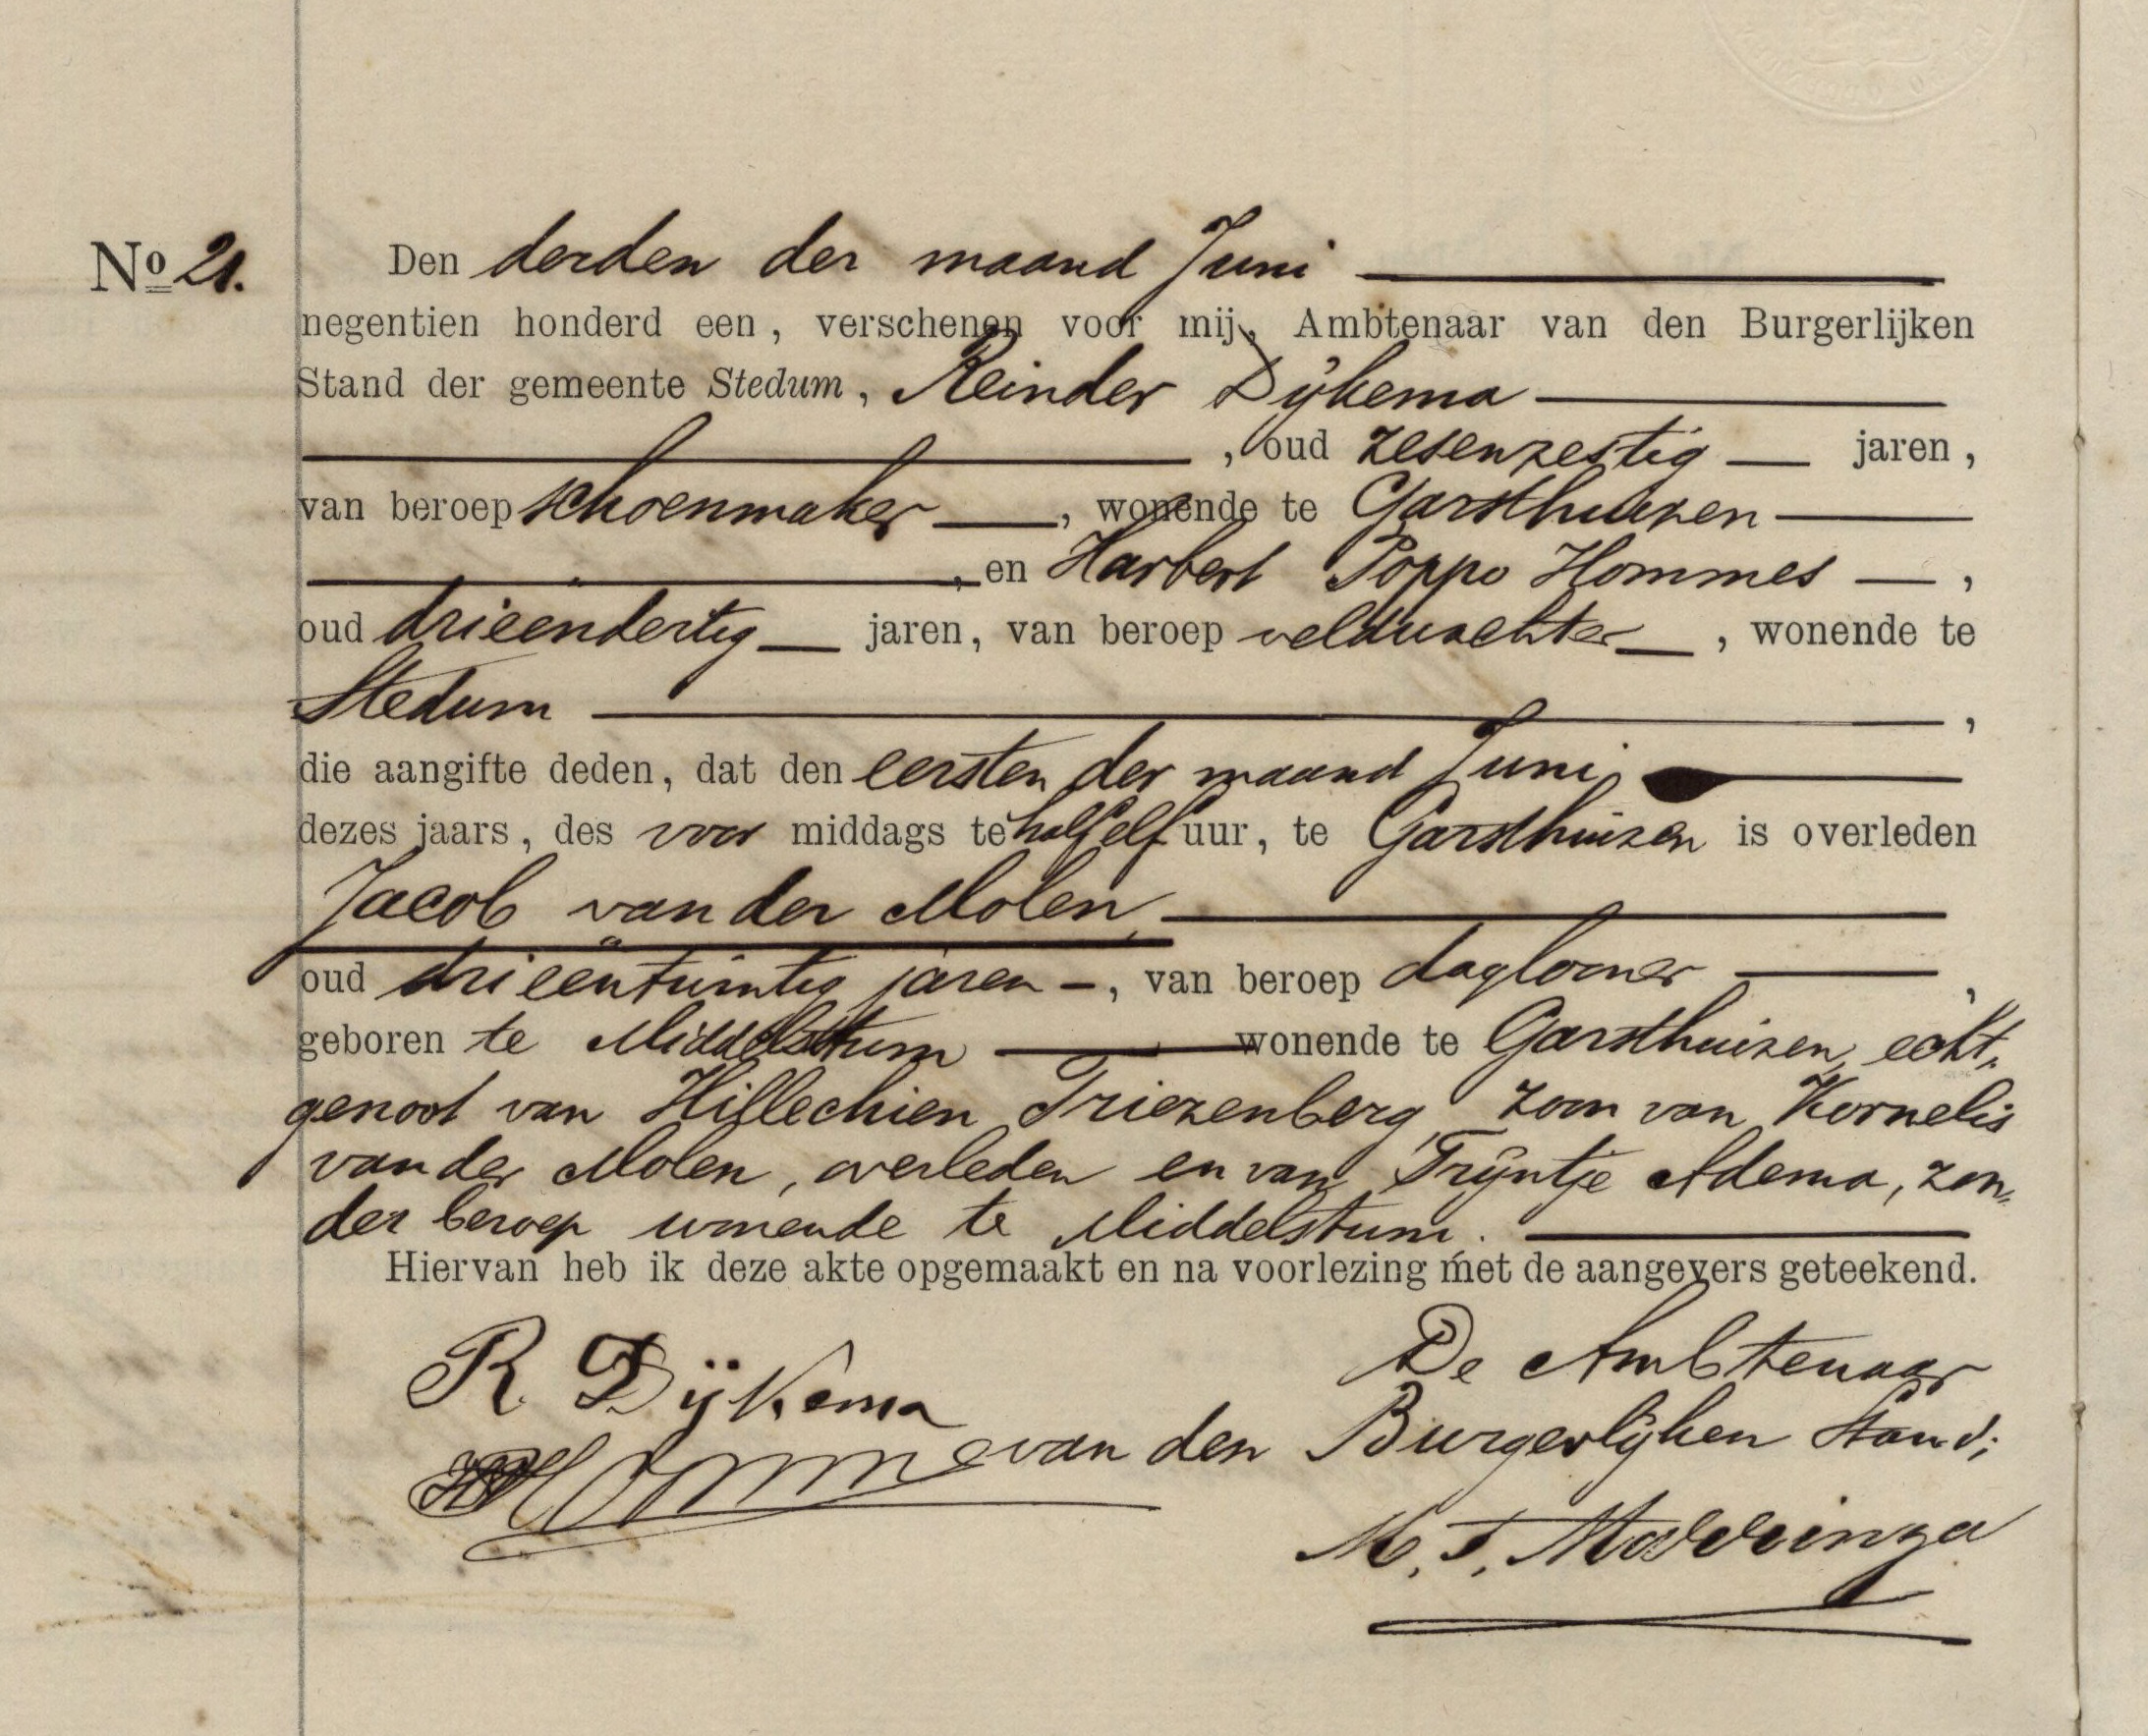 No 21. Den derden der maand Juni
negentien honderd een, verschenen voor mij, Ambtenaar van den Burgerlijken
Stand der gemeente Stedum, Reinder Dijkema
, oud zesenzestig jaren,
van beroep schoenmaker, wonende te Garsthuizen
, en Harbert Poppo Hommes,
oud drieëndertig jaren, van beroep veldwachter, wonende te
Stedum,
die aangifte deden, dat den eersten der maand Juni
dezes jaars, des voor middags te half elf uur, te Garsthuizen is overleden
Jacob van der Molen,
oud drieëntwintig jaren, van beroep dagloner,
geboren te Middelstum wonende te Garsthuizen, echt„
genoot van Hillechien Triezenberg, zoon van Kornelis
van der Molen, overleden en van Trijntje Adema, zon„
der beroep wonende te Middelstum.
Hiervan heb ik deze akte opgemaakt en na voorlezing met de aangevers geteekend.
R. Dijkema
De Ambtenaar
van den Burgerlijken Stand;
Hommes